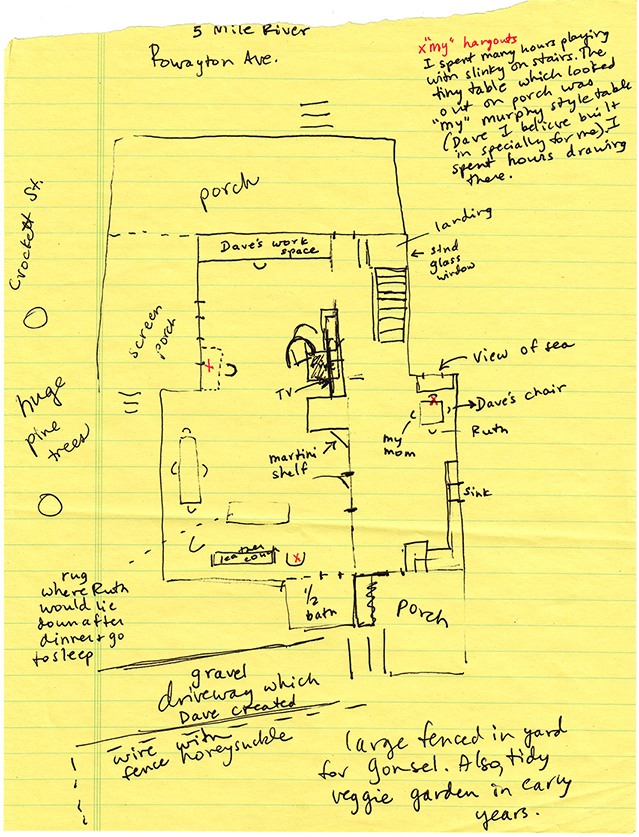 5 Mile River
Rowayton Ave.
x "my" hangouts
I spent many hours playing
with slinky on stairs. The
tiny table which looked
out on porch was
"my" murphy style table
(Dave I believe built
in specially for me). I
spent hours drawing
there.
porch
landing
stnd
glass
window
Dave's work
space
Crockett St.
screen
porch
x
TV
view of sea
x
Dave's chair
my
mom
Ruth
huge
pine
trees
martini
shelf
sink
leather
couch
x
rug
where Ruth
would lie
down after
dinner & go
to sleep
1/2
bath
porch
gravel
driveway which
Dave created
wire with
fence honeysuckle
large fenced in yard
for Gonsel. Also, tidy
veggie garden in early
years.